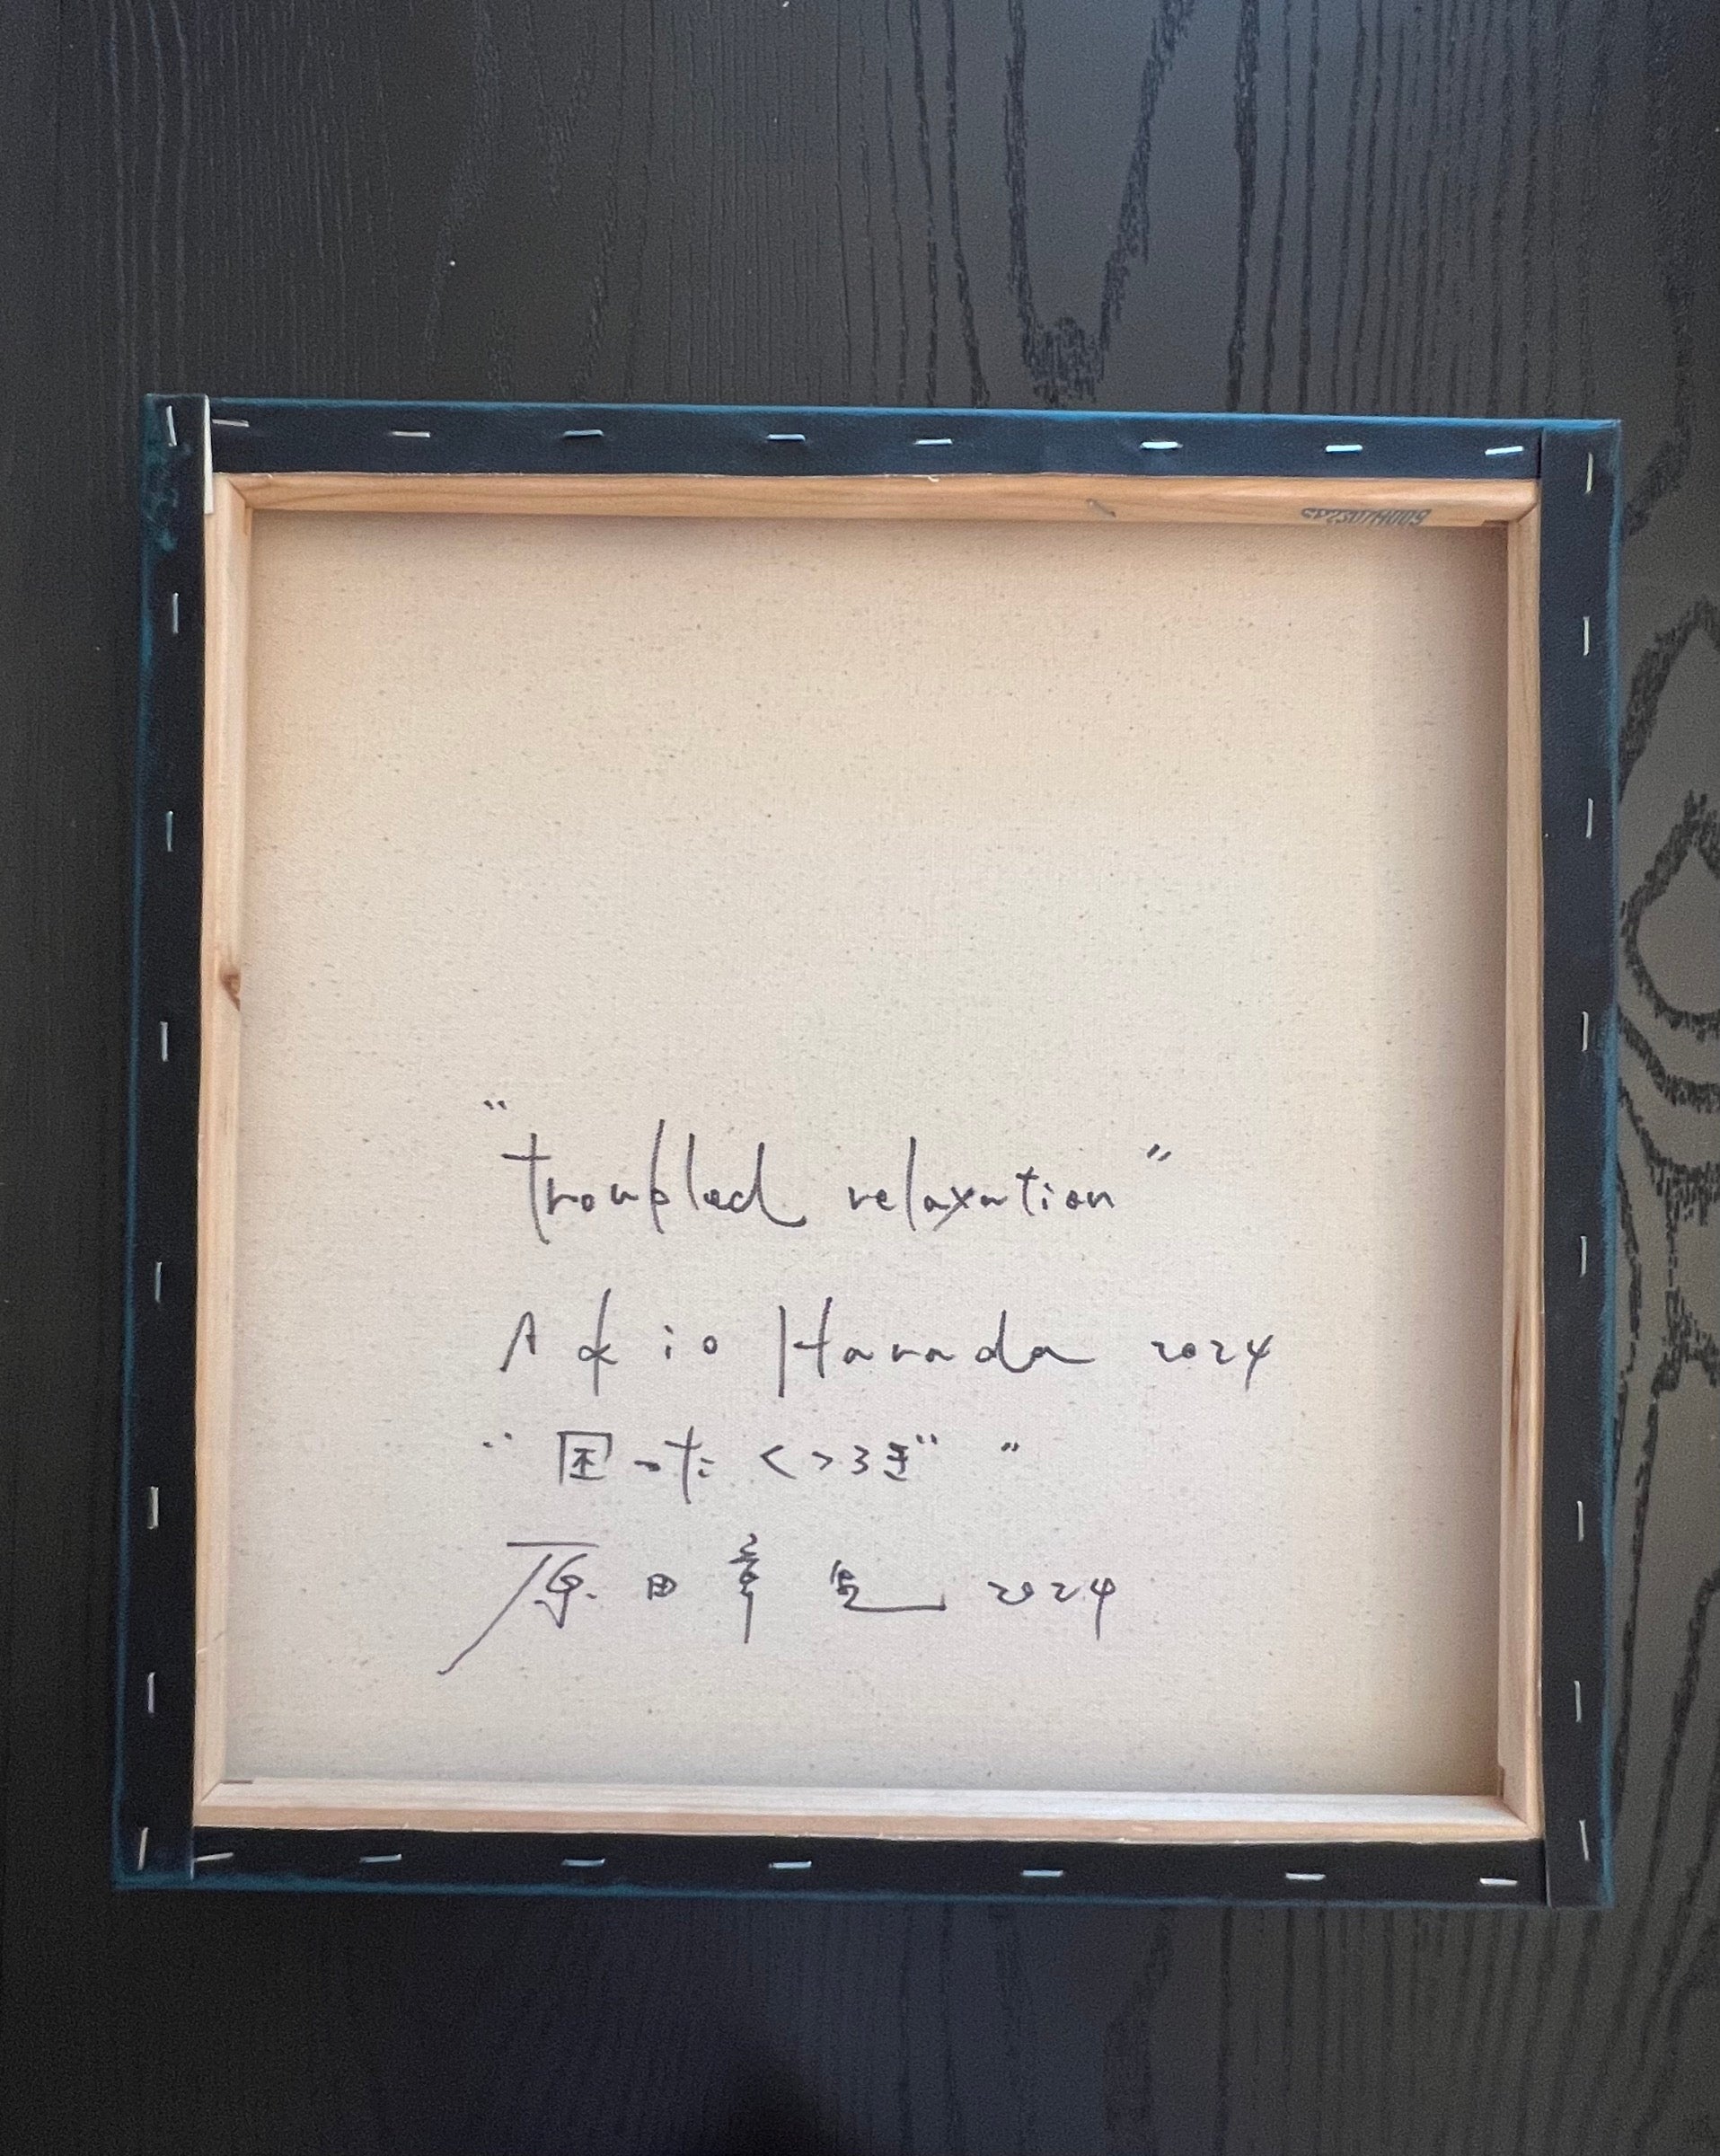 "troubled relaxation"
Akio Harada 2024
"困ったくつろぎ"
原田章生 2024